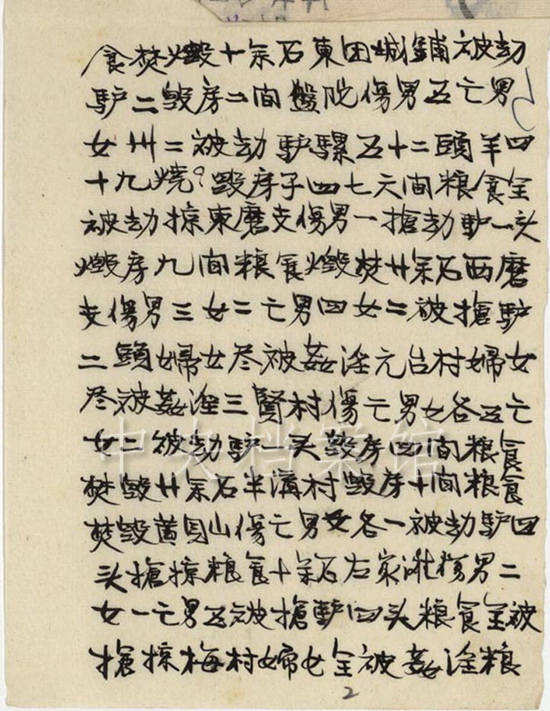 食焚燬十余石東田城鋪被劫
驴二毁房二間盤院傷男五亡男
女卅二被劫驴騾五十二頭羊四
十九燒?毀房子四七六間粮食全
被劫掠東磨支傷男一搶劫驴一头
燬房九間粮食燬焚廿余石西磨
支傷男三女二亡男四女二被搶驴
二頭婦女尽被姦淫元台村婦女
尽被姦淫三賢村傷亡男女各五亡
女二被劫驴一头毁房四間粮食
焚毁廿余石半溝村毁房十間粮食
焚毁黄山傷亡男女各一被劫驴四
头搶掠粮食十余石左家男二
女一亡男五被搶驴四头粮食全被
搶掠梅村婦女全被姦淫粮
2
中央档案馆